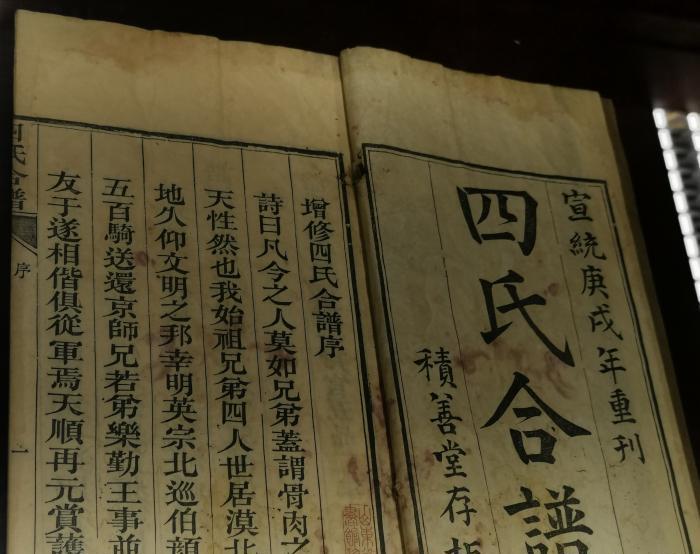 宣統庚戌年重刊
四氏合譜
積善堂存板
增修四氏合譜序
詩曰凡今之人莫如兄弟蓋謂骨肉之
天性然也我始祖兄弟四人世居漠北
地久仰文明之邦幸明英宗北巡伯顏
五百騎送還京師兄若弟樂勤王事並
友于遂相偕俱從軍焉天順再元賞護
四氏合譜
序
一